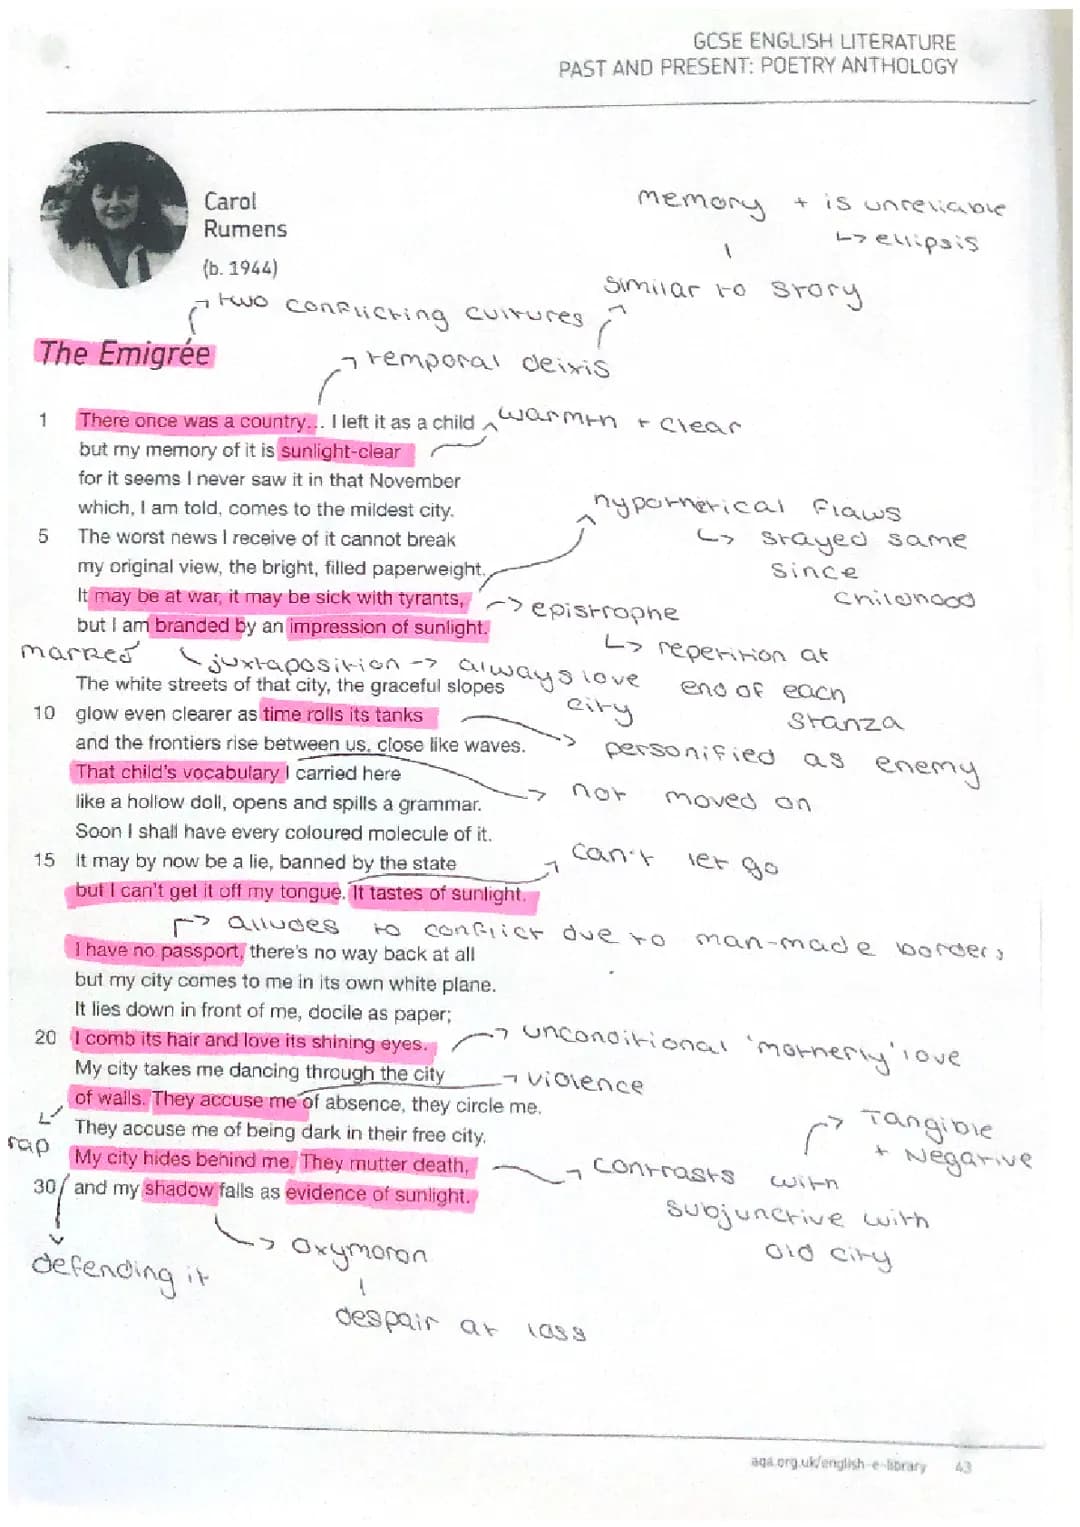 GCSE ENGLISH LITERATURE
PAST AND PRESENT: POETRY ANTHOLOGY
Carol
Rumens
(b. 1944)
memory + is unreliable
↳ ellipsis
similar to story
two conflicting cultures
The Emigrée
temporal deixis
1 There once was a country... I left it as a child
warmth + clear
but my memory of it is sunlight-clear
for it seems I never saw it in that November
which, I am told, comes to the mildest city.
hypothetical flaws
↳ stayed same
since
childhood
5 The worst news I receive of it cannot break
my original view, the bright, filled paperweight.
It may be at war, it may be sick with tyrants,
but I am branded by an impression of sunlight.
epistrophe
↳ repetition at
end of each
stanza
marked
juxtaposition -> always love
city
The white streets of that city, the graceful slopes
10 glow even clearer as time rolls its tanks
personified as enemy
and the frontiers rise between us, close like waves.
not moved on
That child's vocabulary I carried here
like a hollow doll, opens and spills a grammar.
Soon I shall have every coloured molecule of it.
15 It may by now be a lie, banned by the state
can't let go
but I can't get it off my tongue. It tastes of sunlight.
alludes to conflict due to man-made borders
I have no passport, there's no way back at all
but my city comes to me in its own white plane.
It lies down in front of me, docile as paper;
20 I comb its hair and love its shining eyes.
unconditional 'motherly' love
My city takes me dancing through the city
violence
of walls. They accuse me of absence, they circle me.
They accuse me of being dark in their free city.
rap
My city hides behind me. They mutter death,
contrasts with
subjunctive with
old city
Tangible
+ Negative
30 and my shadow falls as evidence of sunlight.
defending it
oxymoron
despair at loss
aqa.org.uk/english-e-library 43